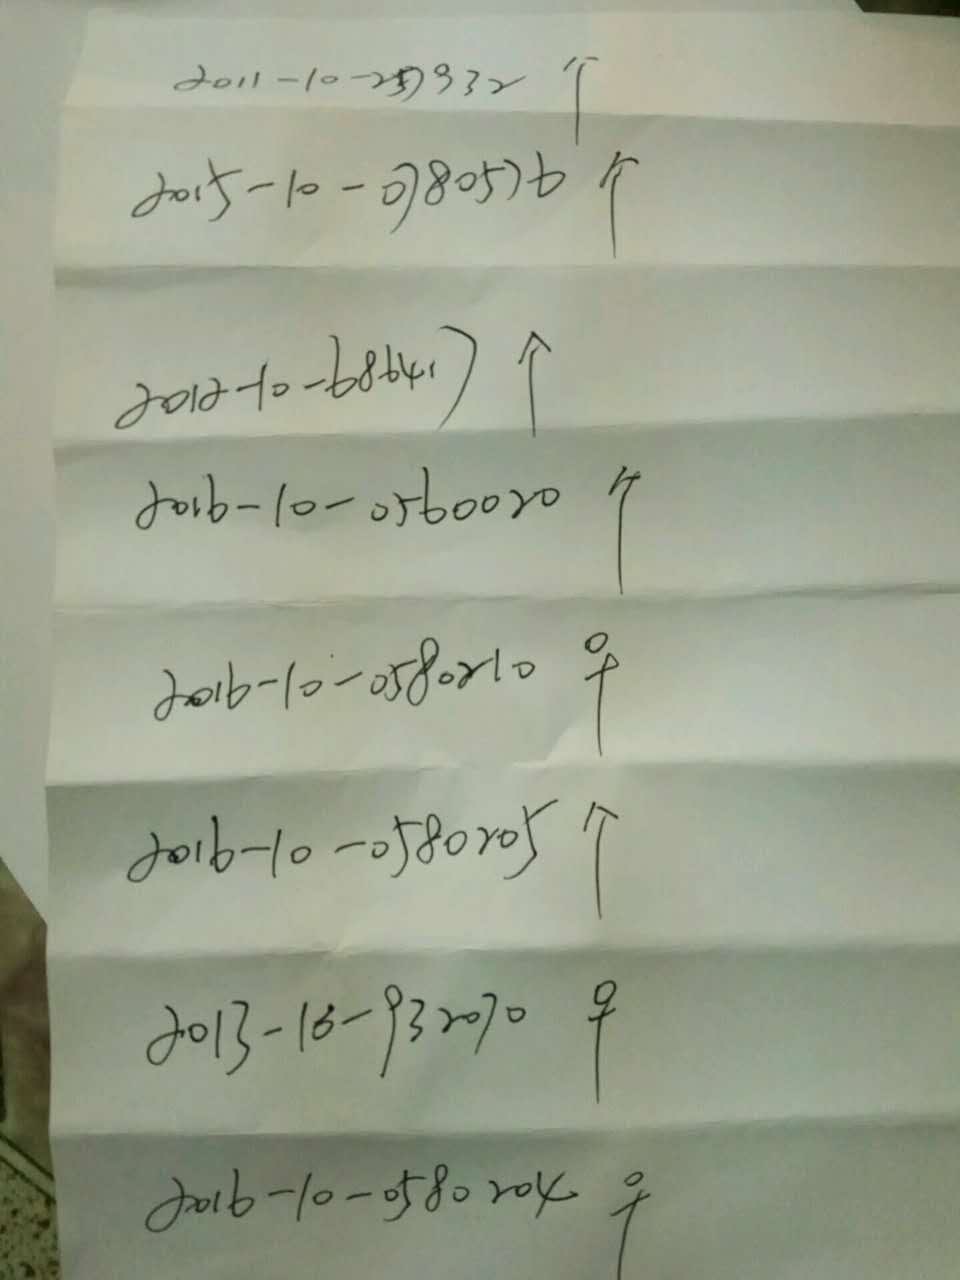 2011-10-257932 ↑
2015-10-0780576 ↑
2012-10-686417 ↑
2016-10-0560020 ↑
2016-10-0580210 ♀
2016-10-0580205 ↑
2013-10-932070 ♀
2016-10-0580204 ♀